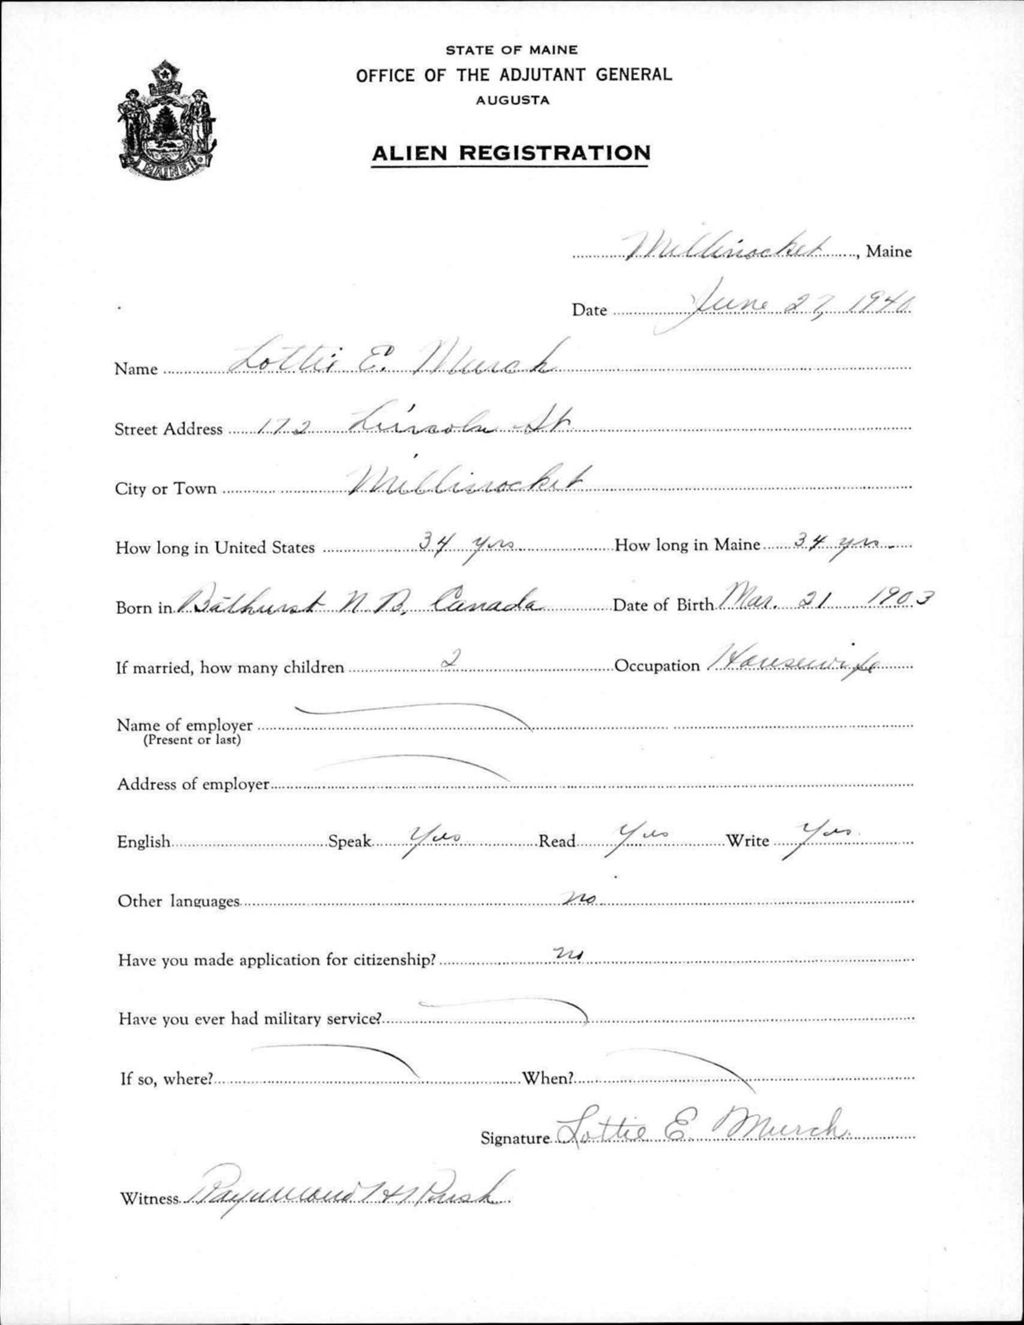 STATE OF MAINE
OFFICE OF THE ADJUTANT GENERAL
AUGUSTA
MAINE
ALIEN REGISTRATION
Millinocket, Maine
Date June 27, 1940
Name Lottie E. Murch
Street Address 172 Lincoln St
City or Town Millinocket
How long in United States 34 yrs How long in Maine 34 yrs
Born in Bathurst N.B. Canada Date of Birth Mar. 21 1903
If married, how many children 2 Occupation Housewife
Name of employer
(Present or last)
Address of employer
English Speak Yes Read Yes Write Yes
Other languages no
Have you made application for citizenship? no
Have you ever had military service?
If so, where? When?
Signature Lottie E. Murch
Witness Raymond H Rush